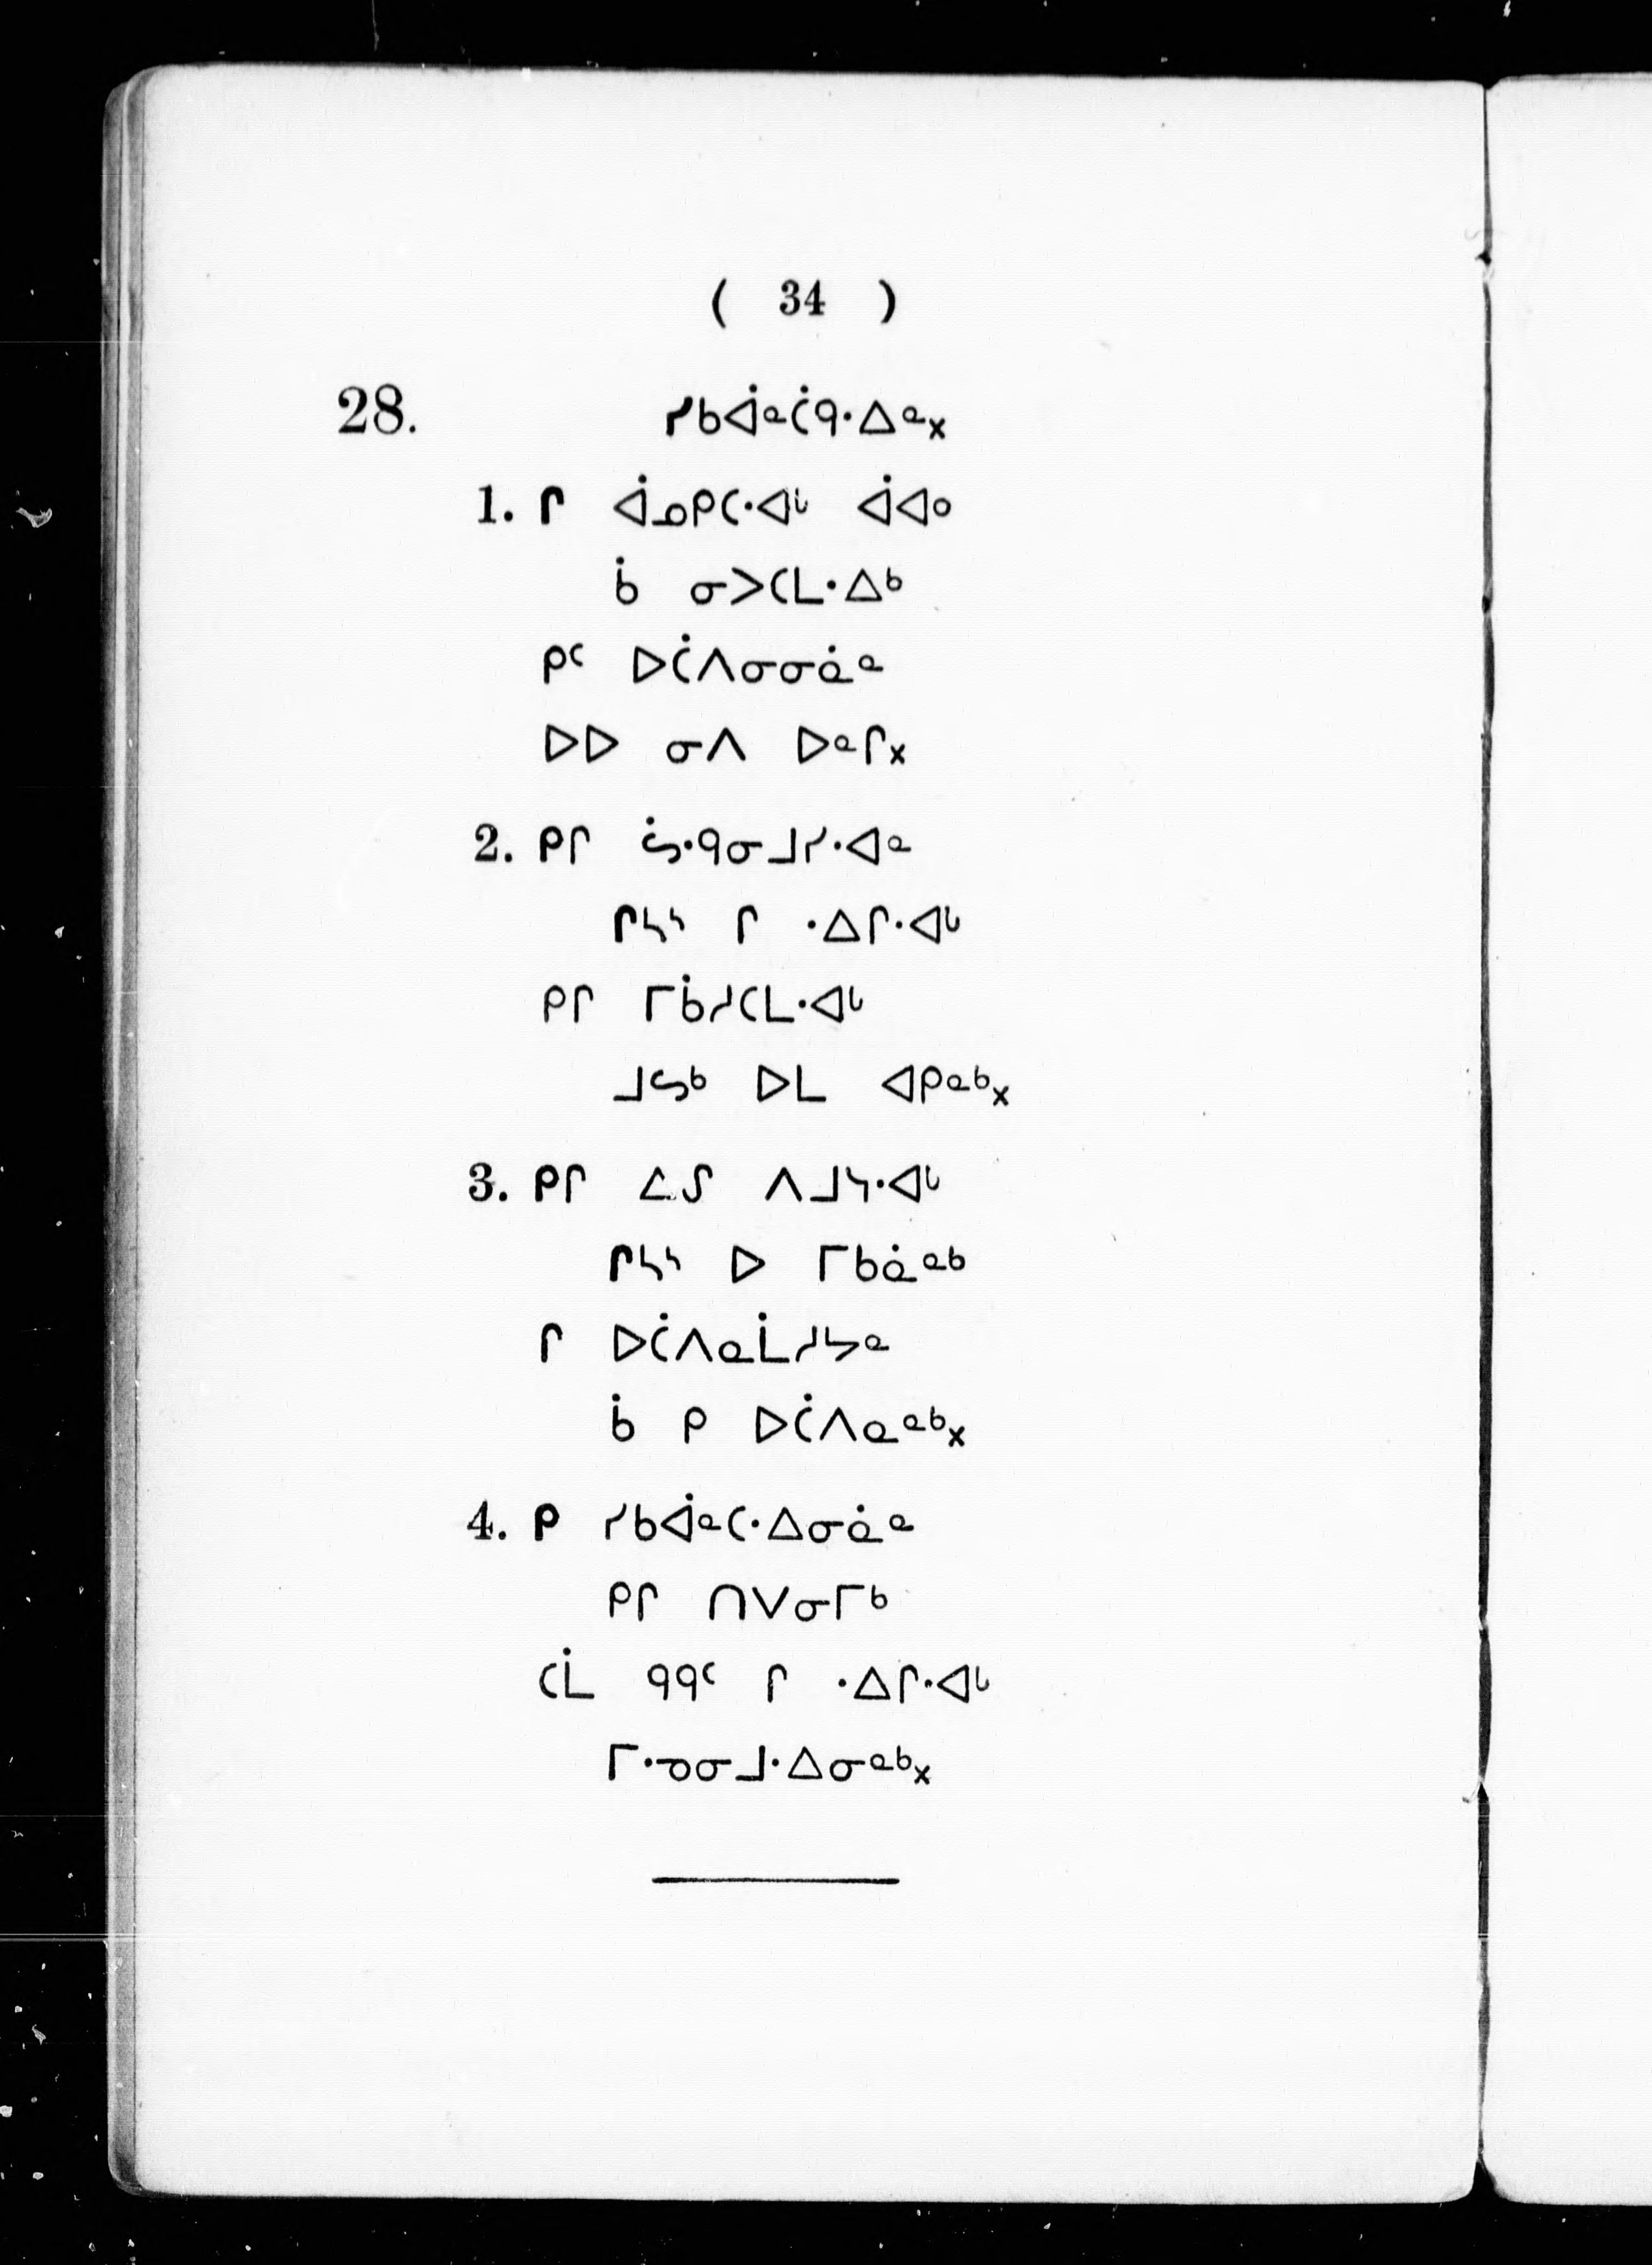 ( 34 )
28. ᓯᑲᐋᓐᑖᑫᐧᐃᓐ᙮
1. ᒋ ᐋᓄᑭᑕᐧᐊᒡ ᐋᐊᐤ
ᑳ ᓂᐳᑕᒪᐧᐃᒃ
ᑭᑦ ᐅᑖᐱᓂᓂᓈᓐ
ᐅᐅ ᓂᐱ ᐅᓐᒋ᙮
2. ᑭᒋ ᓵᐧᑫᓂᒧᓯᐧᐊᓐ
ᒋᓴᔅ ᒋ ᐧᐃᒋᐧᐊᒡ
ᑭᒋ ᒥᑳᓱᑕᒪᐧᐊᒡ
ᒧᔕᒃ ᐅᒪ ᐊᑭᓇᒃ᙮
3. ᑭᒋ ᓛᔑ ᐱᒧᓭᐧᐊᒡ
ᒋᓴᔅ ᐅ ᒥᑲᓈᓐᒃ
ᒋ ᐅᑖᐱᓇᒫᓱᔭᓐ
ᑳ ᑭ ᐅᑖᐱᓇᓐᒃ᙮
4. ᑭ ᓯᑲᐋᓐᑕᐧᐃᓂᓈᓐ
ᑭᒋ ᑎᐯᓂᒥᒃ
ᑕᒫ ᑫᑫᑦ ᒋ ᐧᐃᒋᐧᐊᒡ
ᒥᐧᓀᓂᒧᐧᐃᓂᓐᒃ᙮